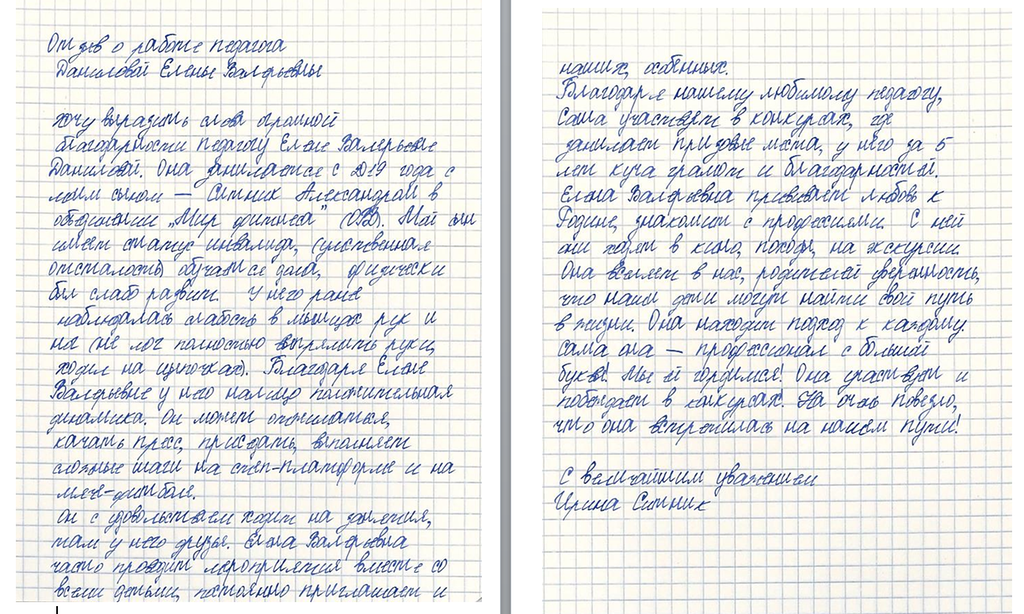 Отзыв о работе педагога
Даниловой Елены Валерьевны
Хочу выразить слова огромной
благодарности педагогу Елене Валерьевне
Даниловой. Она занимается с 2019 года с
моим сыном — Ситник Александром в
объединении "Мир фитнеса" (ОВЗ). Мой сын
имеет статус инвалида, (умственная
отсталость) обучается дома, физически
был слабо развит. У него ранее
наблюдалась слабость в мышцах рук и
ног (не мог полностью выпрямить руки,
ходил на цыпочках). Благодаря Елене
Валерьевне у него налицо положительная
динамика. Он может отжиматься,
качать пресс, приседать, выполняет
сложные шаги на степ-платформе и на
мяче-фитболе.
Он с удовольствием ходит на занятия,
там у него друзья. Елена Валерьевна
часто проводит мероприятия вместе со
всеми детьми, постоянно приглашает и
наших, особенных.
Благодаря нашему любимому педагогу,
Саша участвует в конкурсах, где
занимает призовые места, у него за 5
лет куча грамот и благодарностей.
Елена Валерьевна прививает любовь к
Родине, знакомит с профессиями. С ней
они ходят в кино, походы, на экскурсии.
Она вселяет в нас, родителей уверенность,
что наши дети могут найти свой путь
в жизни. Она находит подход к каждому.
Сама она — профессионал с большой
буквы! Мы ей гордимся! Она участвует и
побеждает в конкурсах! На очень повезло,
что она встретилась на нашем пути!
С величайшим уважением
Ирина Ситник